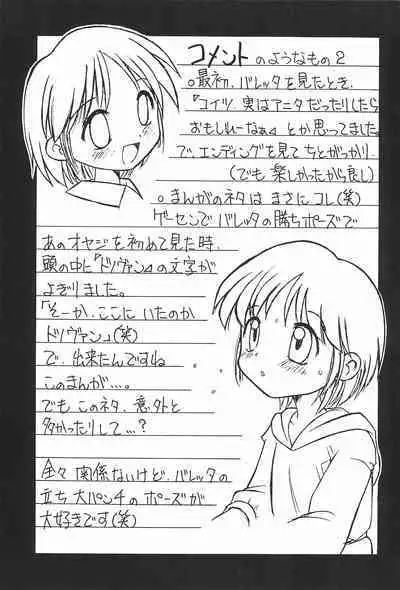 コメント のようなもの 2
○最初、バレッタを見たとき、
『コイツ 実はアニタだったりしたら
おもしれーなぁ』とか思ってました。
で、エンディングを見てちとがっかり。
(でも楽しかったから良し)
○まんがのネタは まさに コレ(笑)
ゲーセンで バレッタの勝ちポーズで
あのオヤジを初めて見た時、
頭の中に『ドノヴァン』の文字が
よぎりました。
「そーか、ここに いたのか
ドノヴァン」(笑)
で、出来たんですね
このまんが…。
でも このネタ、意外と
多かったりして…?
全々 関係ないけど、バレッタの
立ち 大パンチの ポーズが
大好きです(笑)